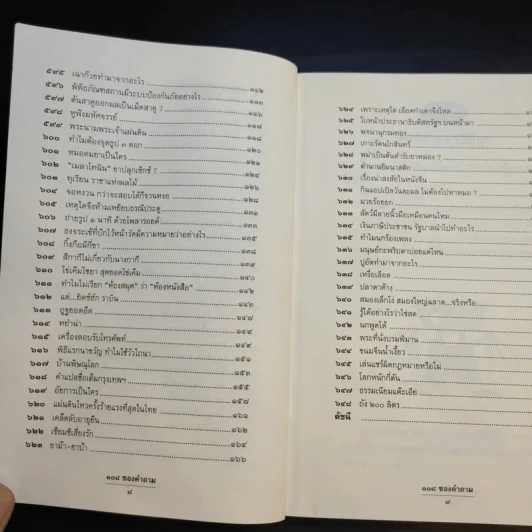 ๕๙๕ เฉาก๊วยทำมาจากอะไร ๑๑๒
๕๙๖ พิพิธภัณฑสถานมีระบบป้องกันภัยอย่างไร ๑๑๓
๕๙๗ ต้นสาคูออกผลเป็นเม็ดสาคู ? ๑๑๖
๕๙๘ หูฟังมหัศจรรย์ ๑๑๗
๕๙๙ พระนามพระเจ้าแผ่นดิน ๑๑๙
๖๐๐ ทำไมต้องจุดธูป ๓ ดอก ๑๒๐
๖๐๑ หมอดมยาเป็นใคร ๑๒๑
๖๐๒ "เมลาโทนิน" ยาปลุกเซ็กซ์ ?
๖๐๓ ทุเรียน ราชาแห่งผลไม้
๖๐๔ จอหงวน กว่าจะสอบได้ก็จวนหงอ
๖๐๕ เหตุใดจึงห้ามเหยียบธรณีประตู
๖๐๖ ถ่ายรูป ๑ นาที ด้วยโพลารอยด์
๖๐๗ ธงจระเข้ที่ปักไว้หน้าวัดมีความหมายว่าอย่างไร ๑๓๕
๖๐๘ กิ้งกือมีกี่ขา
๖๐๙ สีกากีไม่เกี่ยวกับนางกากี ๑๓๙
๖๑๐ ไข่เค็มไชยา สุดยอดไข่เค็ม ๑๔๐
๖๑๑ ทำไมไม่เรียก "ห้องสมุด" ว่า "ห้องหนังสือ" ๑๔๒
๖๑๒ แด่...ยิตซ์ฮัก ราบิน ๑๔๓
๖๑๓ ฤๅษี
๖๑๔ หย่าน้ำ ๑๔๙
๖๑๕ เครื่องตอบรับโทรศัพท์ ๑๔๙
๖๑๖ พิธีแรกนาขวัญ ทำไมใช้วัวไถนา
๖๑๗ บ้านพิษณุโลก ๑๕๓
๖๑๘ คำแปลชื่อเต็มกรุงเทพฯ
๖๑๙ อัยการเป็นใคร ๑๕๗
๖๒๐ แผ่นดินไหวครั้งร้ายแรงที่สุดในไทย ๑๖๑
๖๒๑ เคล็ดลับอายุยืน
๖๒๒ เซียมซีเสี่ยงรัก ๑๖๔
๖๒๓ ยาม้า-ยาบ้า ๑๖๖
๑๐๘ ซองคำถาม
๘
๖๒๔ เพราะเหตุใด เลือดกำเดาจึงไหล
๖๒๕ ใบหน้าประธานาธิบดีสหรัฐฯ บนหน้าผา
๖๒๖ พจนานุกรมทอง
๖๒๗ เกาะรัตนโกสินทร์
๖๒๘ พม่าเป็นต้นตำรับยาหม่อง ?
๖๒๙ ตำนานยิมนาสติก
๖๓๐ เรื่องน่าสงสัยในหนังจีน
๖๓๑ กินแอปเปิลวันละผล ไม่ต้องไปหาหมอ ?
๖๓๒ มวยร้อยยก
๖๓๓ สัตว์มีลายนิ้วมือเหมือนคนไหม
๖๓๔ เงินภาษีประชาชน รัฐบาลนำไปทำอะไร
๖๓๕ ทำไมนกร้องเพลง
๖๓๖ มนุษย์กะพริบตาบ่อยแค่ไหน
๖๓๗ ปูอัดทำมาจากอะไร
๖๓๘ เหงื่อเลือด
๖๓๙ ปลาดาค้าง
๖๔๐ สมองเล็กโง่ สมองใหญ่ฉลาด...จริงหรือ
๖๔๑ รู้ได้อย่างไรว่าไข่สด
๖๔๒ นกพูดได้
๖๔๓ พระที่นั่งบรมพิมาน
๖๔๔ ขนมจีนน้ำเงี้ยว
๖๔๕ เล่นแชร์ผิดกฎหมายหรือไม่
๖๔๖ โลกหนักกี่ตัน
๖๔๗ ธรรมเนียมแต๊ะเอีย
๖๔๘ ถัง ๒๐๐ ลิตร
ดัชนี
๑๐๘ ซองคำถาม
๙